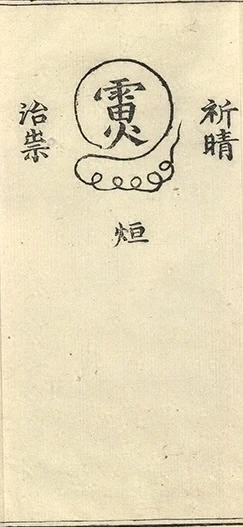 祈晴
烜
治祟